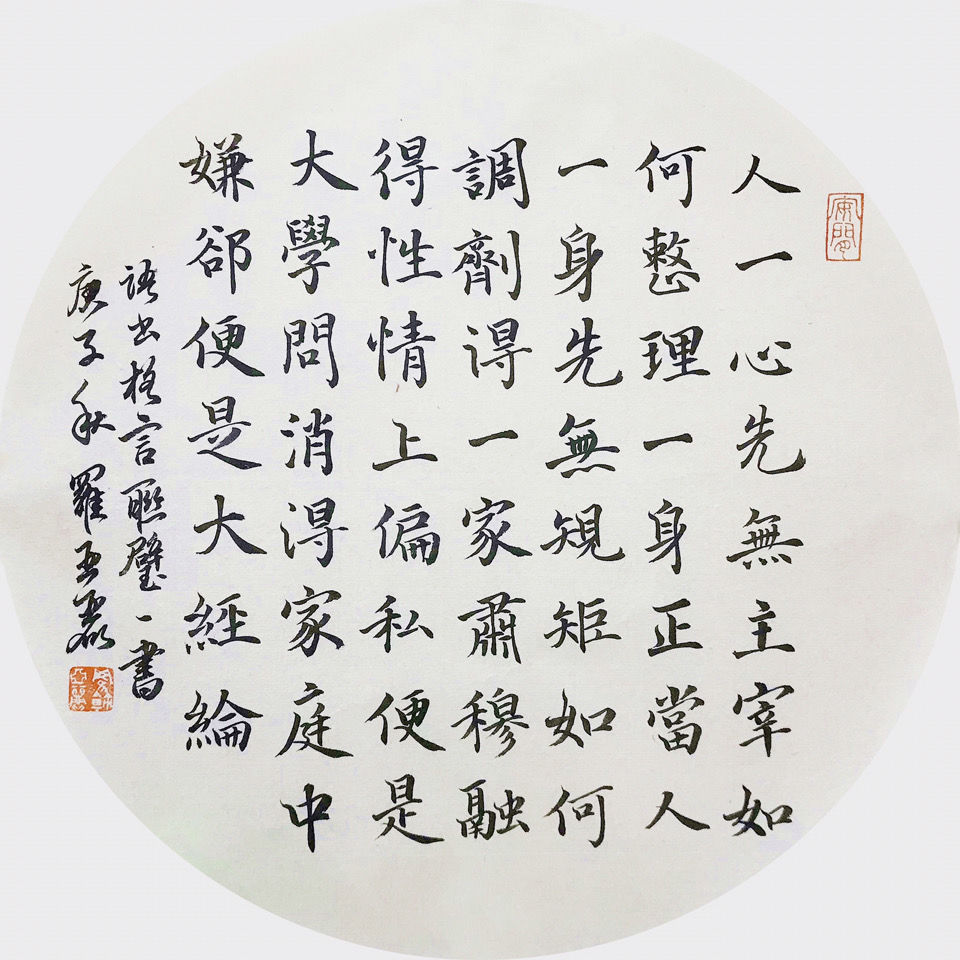 人一心先無主宰如
何整理一身正當人
一身先無規矩如何
調劑得一家肅穆融
得性情上偏私便是
大學問消得家庭中
嫌郤便是大經綸
語出格言聯璧一書
庚子秋羅亞磊